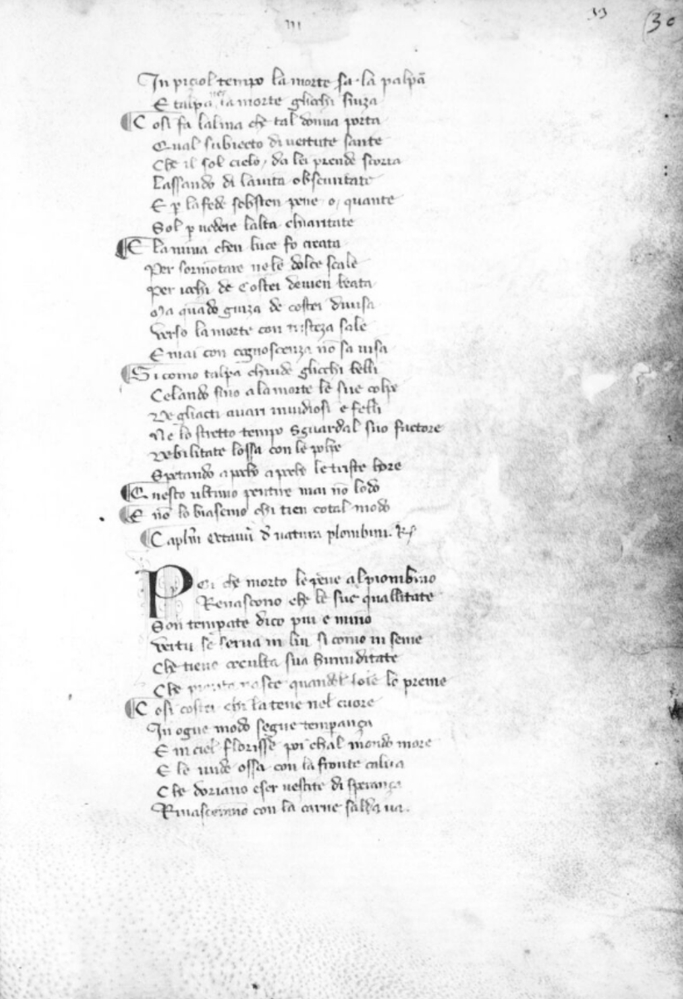 III
13
30
In picol tempo la morte fa la palpa
E talpa ne la morte gliochi sinza
Cosi fa lalma che tal donna porta
Qual subiecto di vertute sante
Che il sol cielo da lei prende scorta
Lassando di la vita obscuritate
E p la fede sosten pene o quante
Sol p vedere lalta chiaritate
E lanima chen luce fo creata
Per sormotare ne le dolce scale
Per iochi de Costei devien beata
Ma quādo guiza de costei divisa
Verso la morte con tristeza sale
E mai con cognoscenza nō fa visa
Si como talpa chiude gliochi belli
Celando fino a la morte le sue colpe
De gliacti avari invidiosi e felli
Ne lo stretto tempo sguardal suo factore
Debilitate lossa con le polpe
Spetando a poco a poco le triste hore
Questo ultimo pentire mai nō lodo
E nō lo biasemo chi tien cotal modo
Caplm octavū d natura plombini. Rx
Poi che morto le pene al piombino
Renascono che le sue quallitate
Son temperate dico piu e mino
Vertu se serva in lui si como in seme
Che tiene occulta sua humiditate
Che nasce quandel lo preme
Cosi costei chi la tene nel cuore
In ogne modo segue temperança
E in ciel florisse poi chal mondo more
E le nude ossa con la fronte calva
Che doviano eser vestite di sperança
Rinascerāno con la carne salva